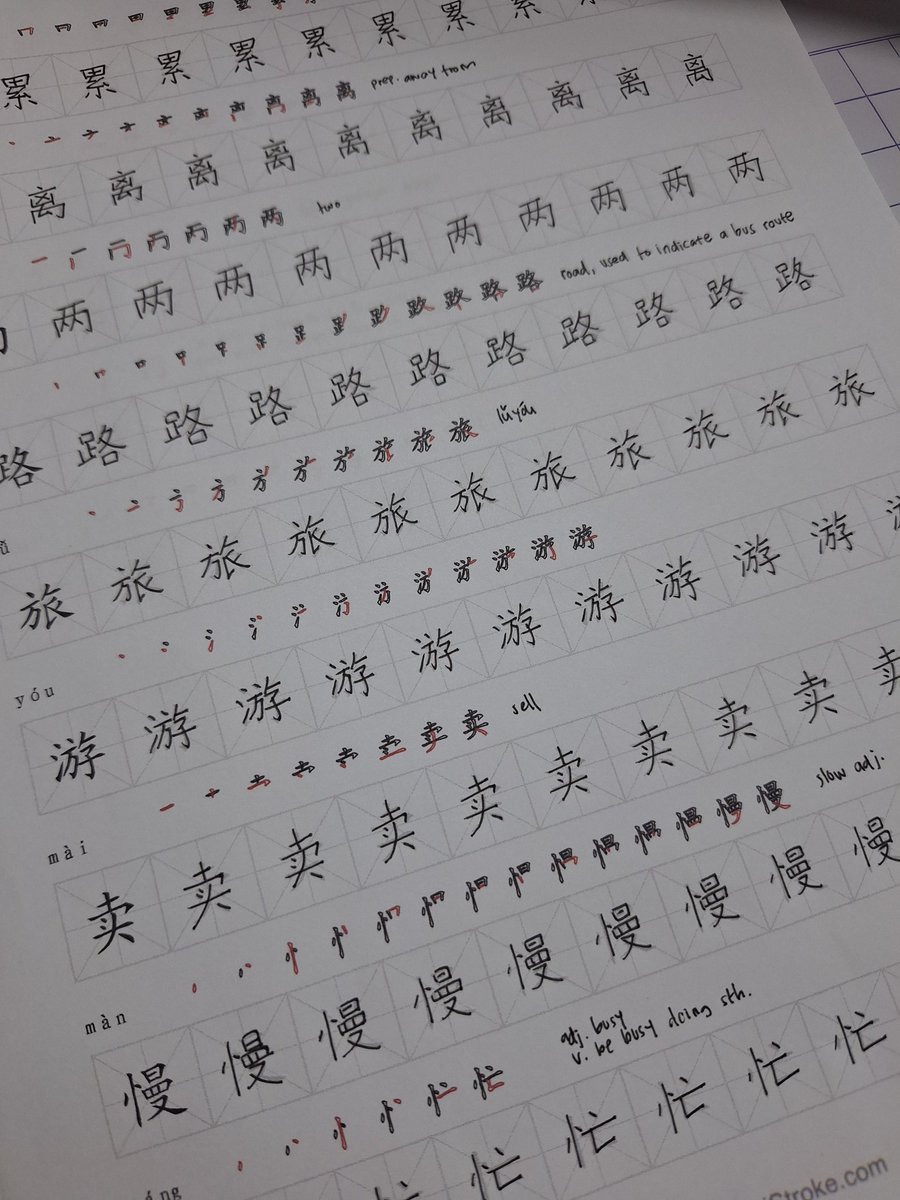 累 累 累 累 累 累 累 累
prep. away from
离 离 离 离 离 离 离 离 离 离
two
两 两 两 两 两 两 两 两 两 两
road, used to indicate a bus route
路 路 路 路 路 路 路 路 路 路 路
lǚyóu
旅 旅 旅 旅 旅 旅 旅 旅 旅 旅 旅
yóu
游 游 游 游 游 游 游 游 游 游
sell
mài
卖 卖 卖 卖 卖 卖 卖 卖 卖 卖
slow adj.
màn
慢 慢 慢 慢 慢 慢 慢 慢 慢
adj. busy
v. be busy doing sth.
áng
忙 忙 忙 忙 忙 忙
Stroke.com